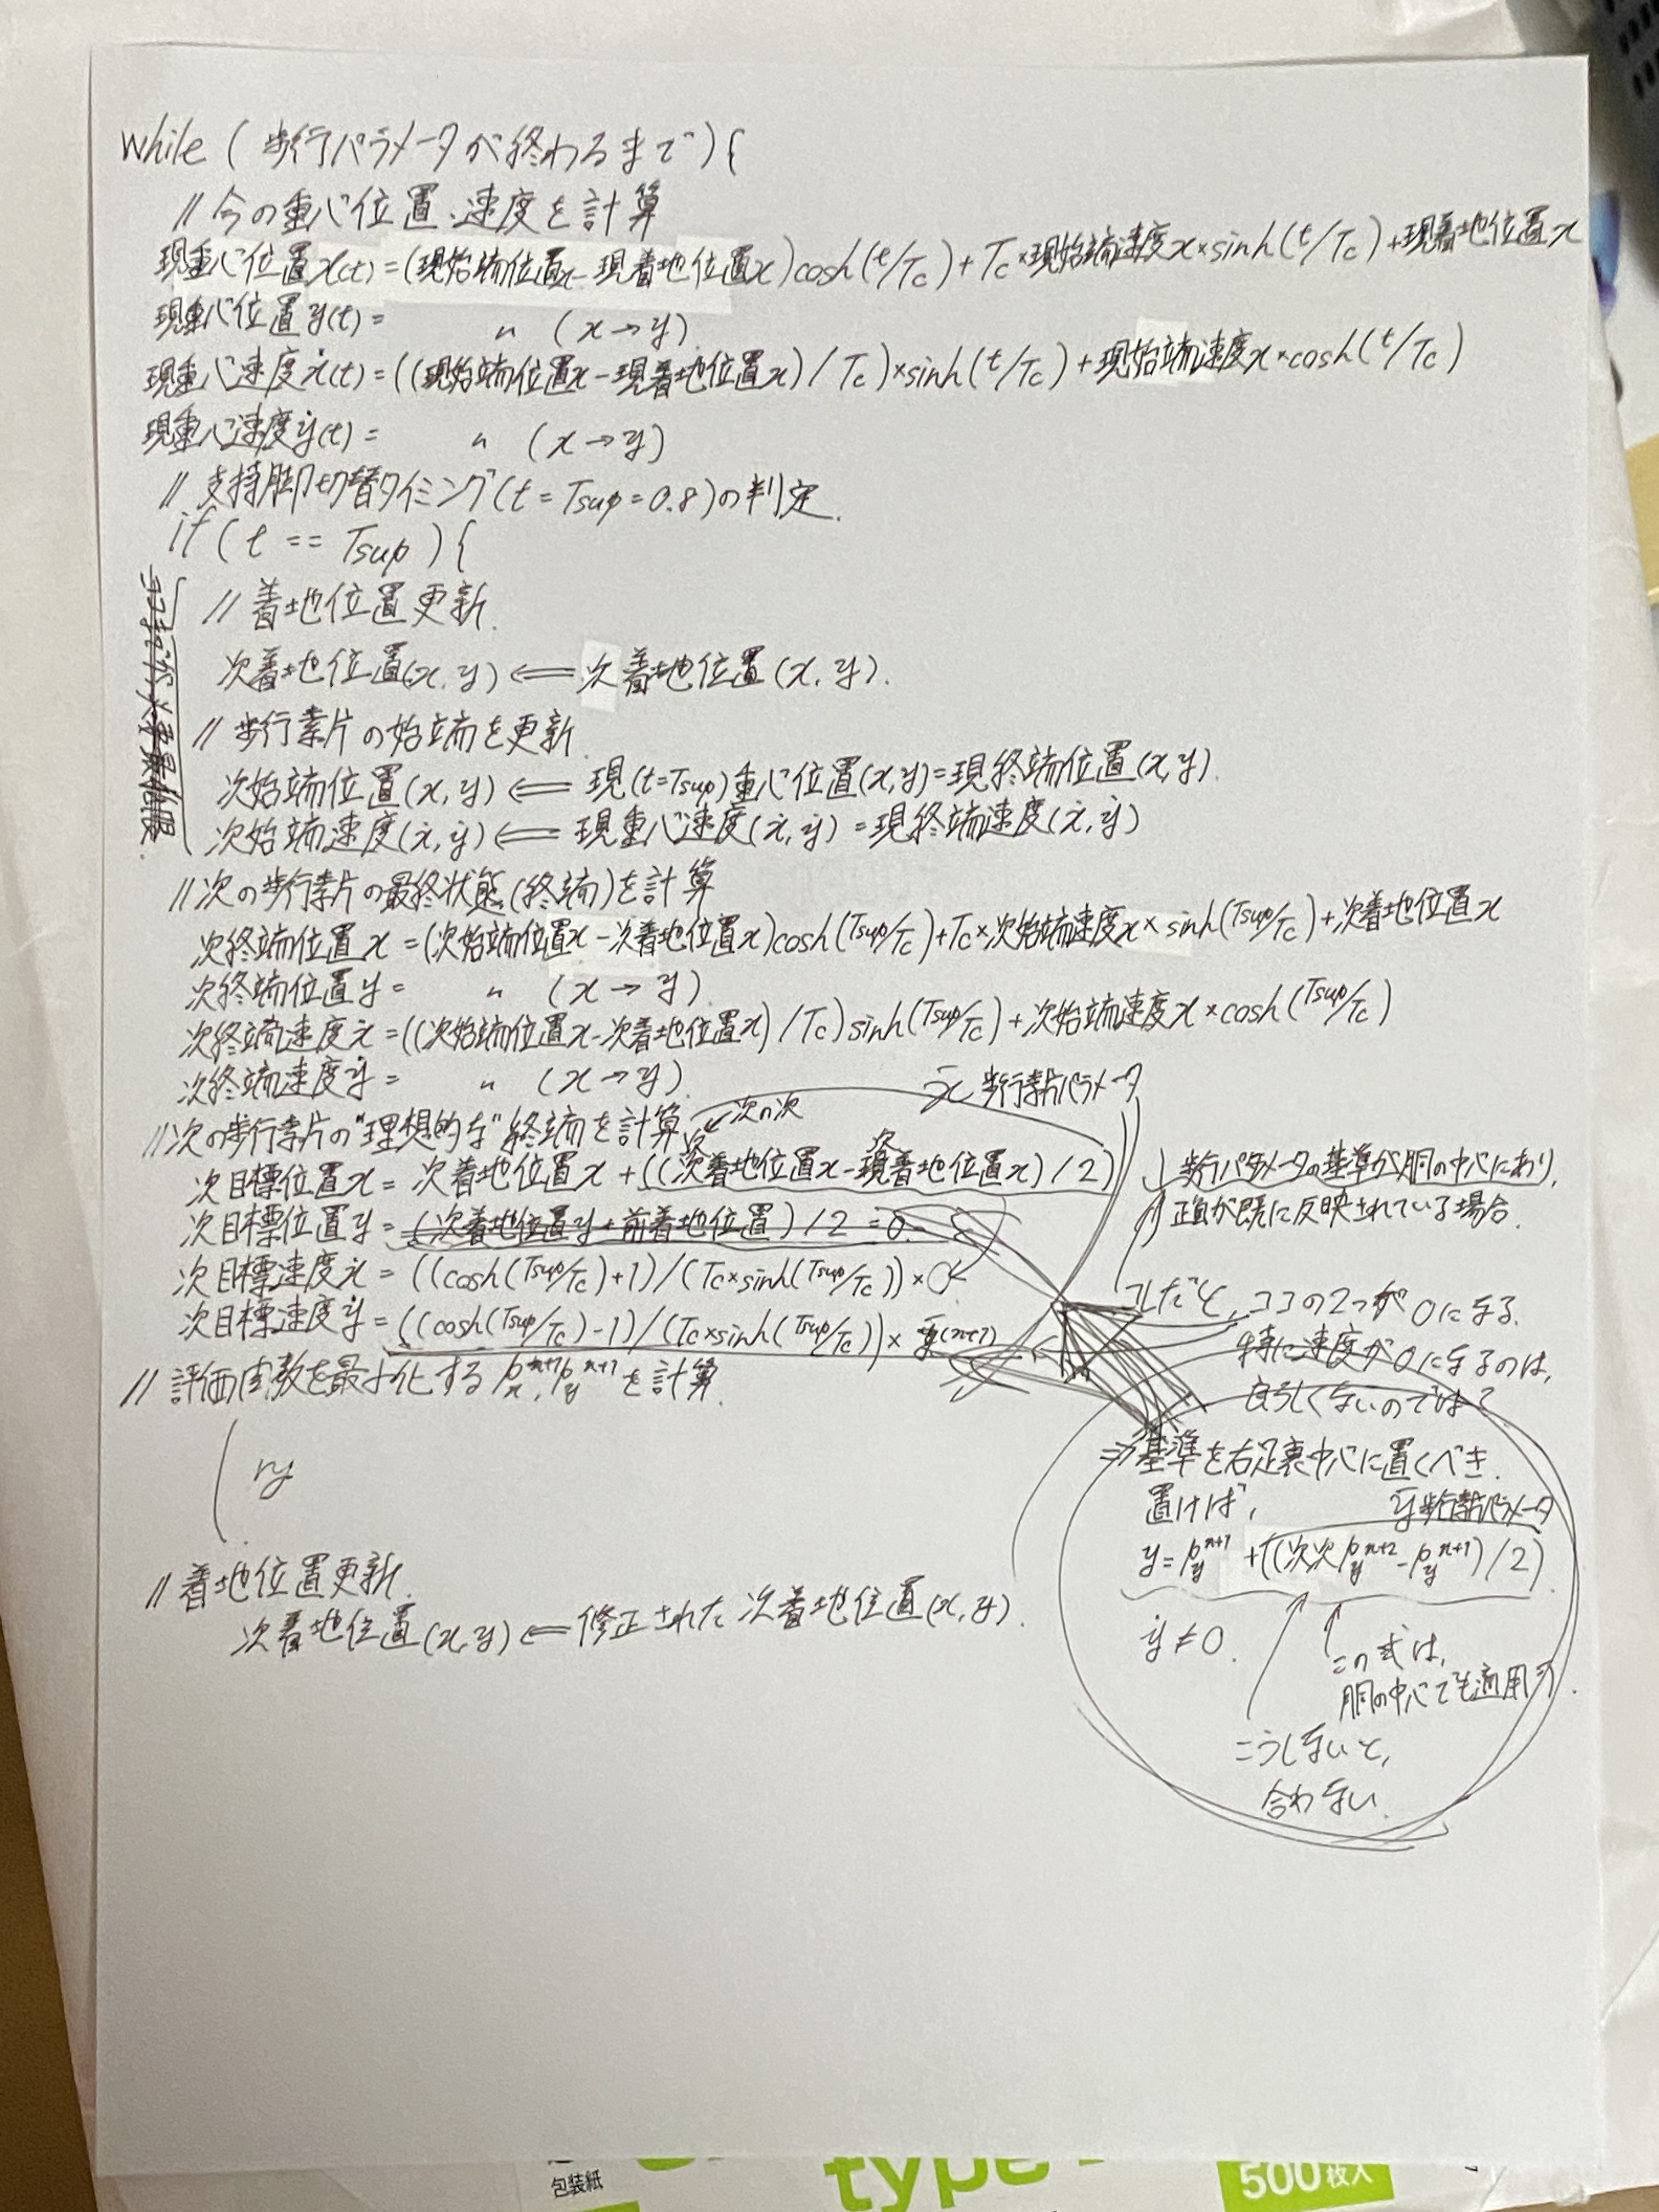 while (歩行パラメータが終わるまで){
// 今の重心位置、速度を計算
現重心位置x(t) = (現始端位置x - 現着地位置x) cosh(t/Tc) + Tc × 現始端速度x × sinh(t/Tc) + 現着地位置x
現重心位置y(t) = 〃 (x→y)
現重心速度ẋ(t) = ((現始端位置x - 現着地位置x) / Tc) × sinh(t/Tc) + 現始端速度x × cosh(t/Tc)
現重心速度ẏ(t) = 〃 (x→y)
// 支持脚切替タイミング(t = Tsup = 0.8)の判定.
if (t == Tsup) {
// 着地位置更新.
次着地位置(x, y) ⇐ 次着地位置(x, y).
// 歩行素片の始端を更新.
次始端位置(x, y) ⇐ 現(t=Tsup)重心位置(x,y) = 現終端位置(x,y).
次始端速度(ẋ, ẏ) ⇐ 現重心速度(ẋ, ẏ) = 現終端速度(ẋ, ẏ)
// 次の歩行素片の最終状態(終端)を計算
次終端位置x = (次始端位置x - 次着地位置x) cosh(Tsup/Tc) + Tc × 次始端速度x × sinh(Tsup/Tc) + 次着地位置x
次終端位置y = 〃 (x→y)
次終端速度ẋ = ((次始端位置x - 次着地位置x) / Tc) sinh(Tsup/Tc) + 次始端速度x × cosh(Tsup/Tc)
次終端速度ẏ = 〃 (x→y).
x̄ 歩行素片パラメータ
// 次の歩行素片の"理想的な"終端を計算
次の次
次目標位置x = 次着地位置x + ((次着地位置x - 現着地位置x) / 2)
次
次目標位置y = (次着地位置y + 前着地位置) / 2 = 0
次目標速度ẋ = ((cosh(Tsup/Tc)+1) / (Tc × sinh(Tsup/Tc)) ×
次目標速度ẏ = ((cosh(Tsup/Tc)-1) / (Tc × sinh(Tsup/Tc)) × ȳ(n+1)
// 評価関数を最小化する px^n+1, py^n+1 を計算.
ry
// 着地位置更新.
次着地位置(x, y) ⇐ 修正された次着地位置(x, y).
歩行パラメータの基準が胴の中心にあり,
正負が既に反映されている場合.
コレだと、ココの2つが0になる.
特に速度が0になるのは,
良ろしくないのでは?
⇒ 基準を右足裏中心に置くべき.
置ければ,
ȳ 歩行素片パラメータ
y = py^n+1 + ((次次py^n+2 - py^n+1) / 2)
ẏ ≠ 0.
この式は,
胴の中心でも適用可.
こうしないと,
合わない.
包装紙
type
500枚入